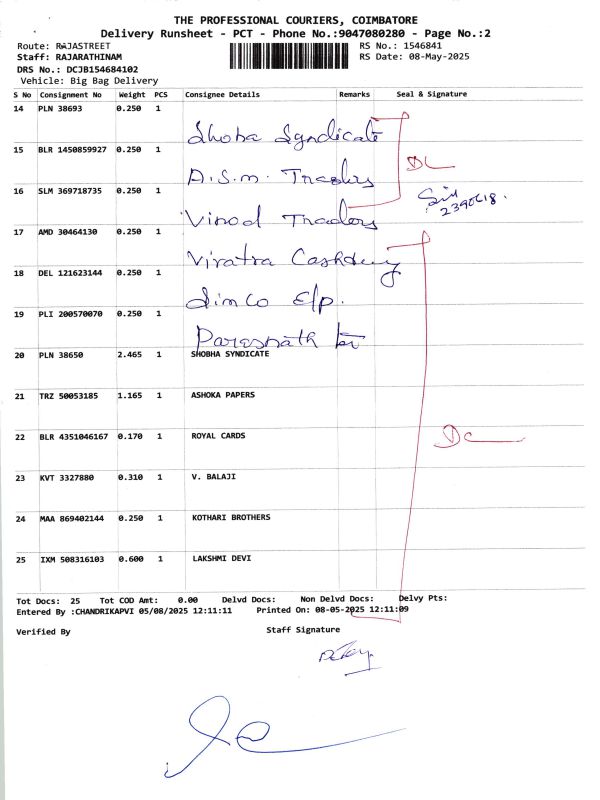 THE PROFESSIONAL COURIERS, COIMBATORE
Delivery Runsheet - PCT - Phone No.:9047080280 - Page No.:2
Route: RAJASTREET
RS No.: 1546841
Staff: RAJARATHINAM
RS Date: 08-May-2025
DRS No.: DCJB154684102
Vehicle: Big Bag Delivery
S No Consignment No Weight PCS Consignee Details Remarks Seal & Signature
14 PLN 38693 0.250 1 Shoba Syndicate
15 BLR 1450859927 0.250 1 A.S.M. Traders
DC
16 SLM 369718735 0.250 1 Vinod Traders
17 AMD 30464130 0.250 1 Viratra
18 DEL 121623144 0.250 1 Simco E/p.
19 PLI 200570070 0.250 1 Parasnath
20 PLN 38650 2.465 1 SHOBHA SYNDICATE
21 TRZ 50053185 1.165 1 ASHOKA PAPERS
22 BLR 4351046167 0.170 1 ROYAL CARDS
DC
23 KVT 3327880 0.310 1 V. BALAJI
24 MAA 869402144 0.250 1 KOTHARI BROTHERS
25 IXM 508316103 0.600 1 LAKSHMI DEVI
Tot Docs: 25 Tot COD Amt: 0.00 Delvd Docs: Non Delvd Docs: Delvy Pts:
Entered By :CHANDRIKAPVI 05/08/2025 12:11:11 Printed On: 08-05-2025 12:11:09
Verified By Staff Signature